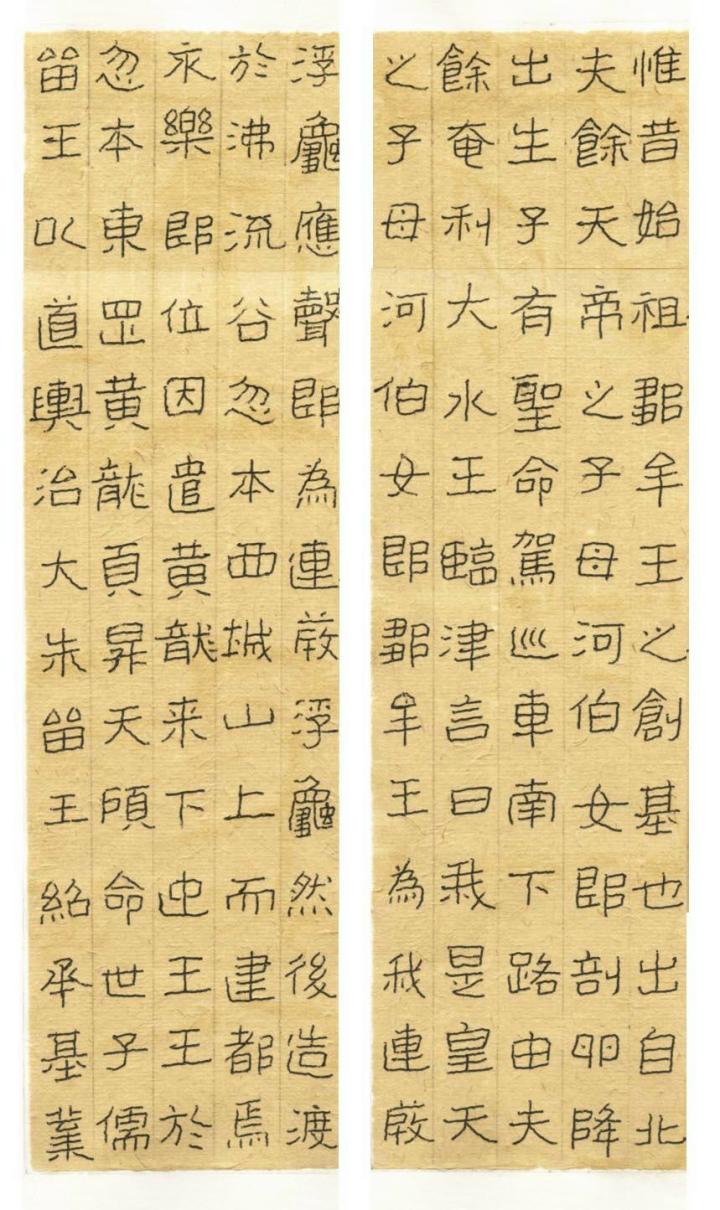 惟昔始祖鄒牟王之創基也出自北
夫餘天帝之子母河伯女郎剖卵降
出生子有聖命駕巡車南下路由夫
餘奄利大水王臨津言曰我是皇天
之子母河伯女郎鄒牟王為我連葭
浮龜應聲即為連葭浮龜然後造渡
於沸流谷忽本西城山上而建都焉
永樂即位因遣黃龍来下迎王王於
忽本東罡黃龍頁昇天頋命世子儒
留王以道輿治大朱留王紹承基業